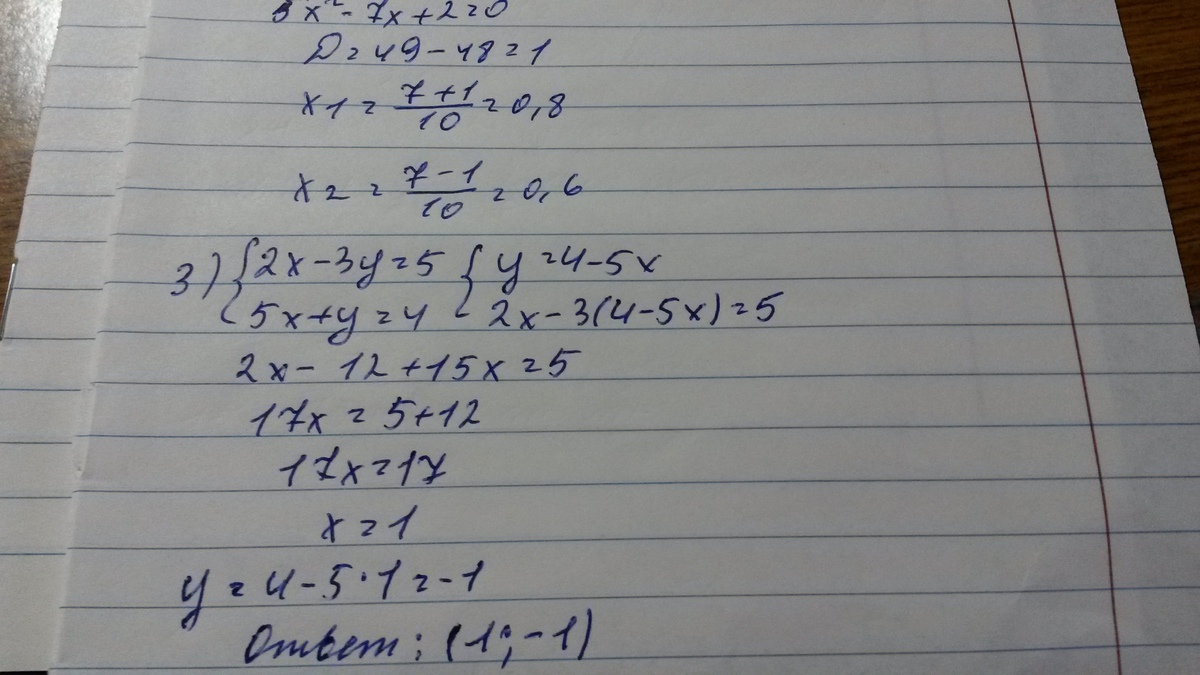 x² - 7x + 2 = 0
D = 49 - 48 = 1
x1 = (7+1)/10 = 0,8
x2 = (7-1)/10 = 0,6
3) { 2x - 3y = 5 { y = 4 - 5x
5x + y = 4 2x - 3(4 - 5x) = 5
2x - 12 + 15x = 5
17x = 5 + 12
17x = 17
x = 1
y = 4 - 5 · 1 = -1
Ответ: (1; -1)